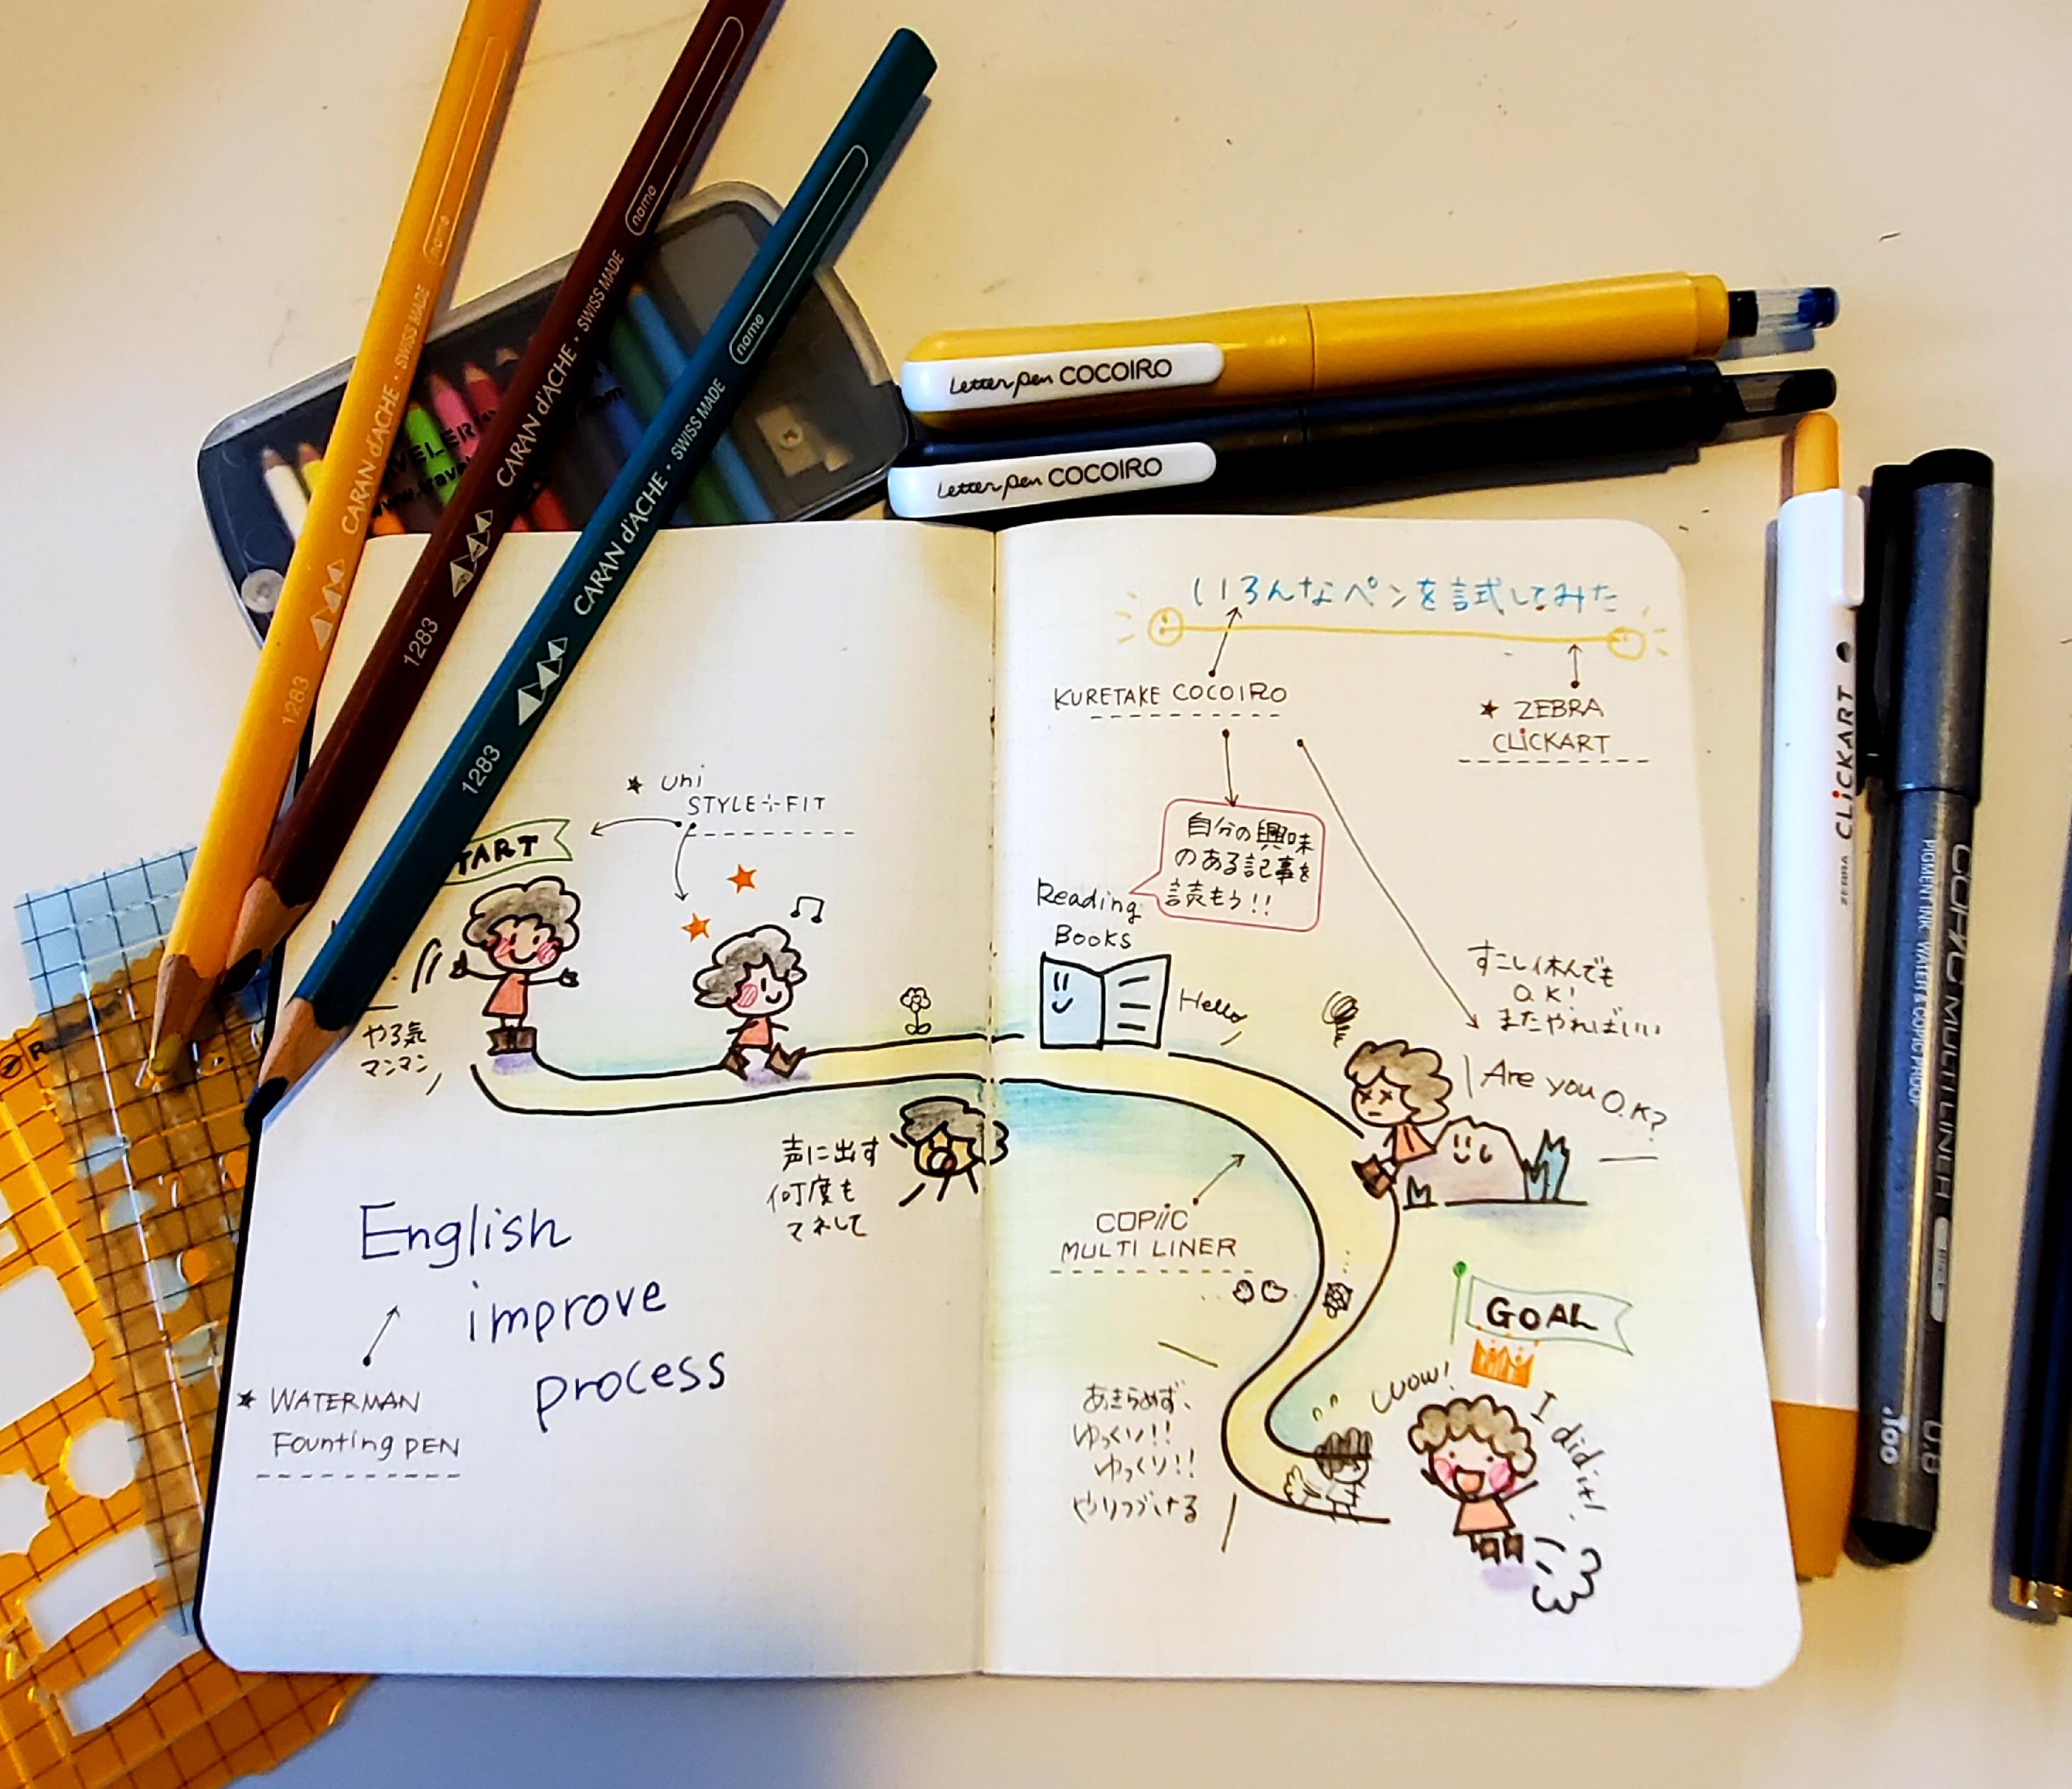 CARAN d'ACHE · SWISS MADE
name
1283
CARAN d'ACHE · SWISS MADE
name
1283
CARAN d'ACHE · SWISS MADE
name
1283
Letter pen COCOIRO
Letter pen COCOIRO
★ uni
STYLE FIT
TART
やる気
マンマン
声に出す
何度も
マネして
English
improve
process
★ WATERMAN
Founting PEN
いろんなペンを試してみた
KURETAKE COCOIRO
★ ZEBRA
CLiCKART
自分の興味
のある記事を
読もう!!
Reading
Books
Hello
すこし休んでも
O.K!
またやればいい
Are you O.K?
COPiC
MULTI LINER
GOAL
Wow!
I did it!
あきらめず、
ゆっくり!!
ゆっくり!!
やりつづける
ZEBRA CLiCKART
COPiC MULTILINER
PIGMENT INK WATER & COPIC PROOF
.Too